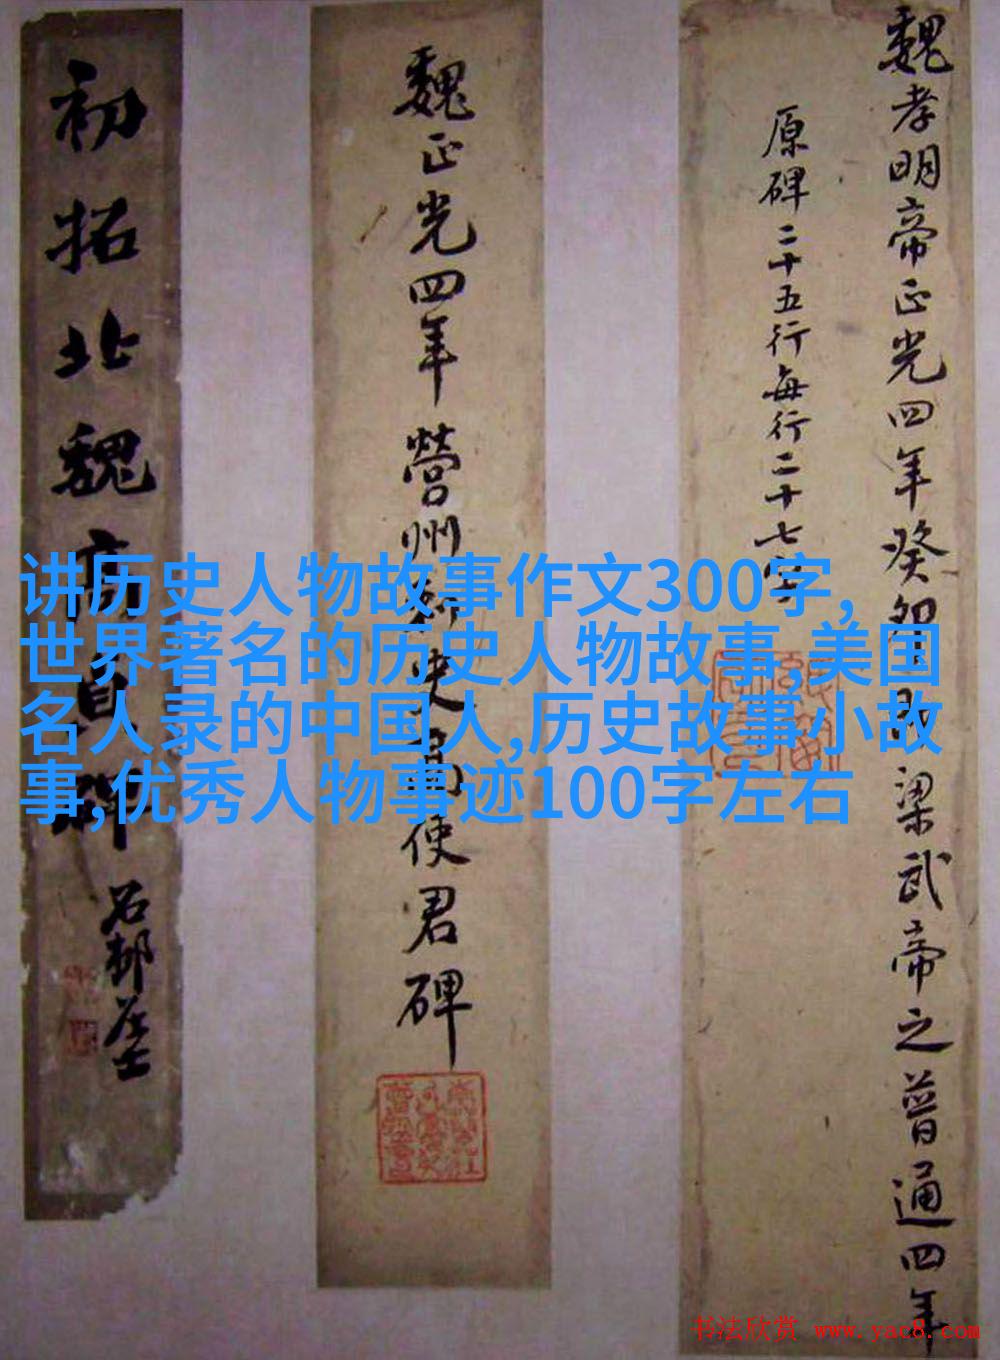 魏孝明帝正光四年癸卯梁武帝之普通四年
原碑二十五行每行二十七字
魏正光四年營州刺史高使君碑
初拓北魏高貞碑
石邨居士
讲历史人物故事作文300字,
世界著名的历史人物故事,美国
名人录的中国人,历史故事小故
事,优秀人物事迹100字左右
书法欣赏 www.yac8.com